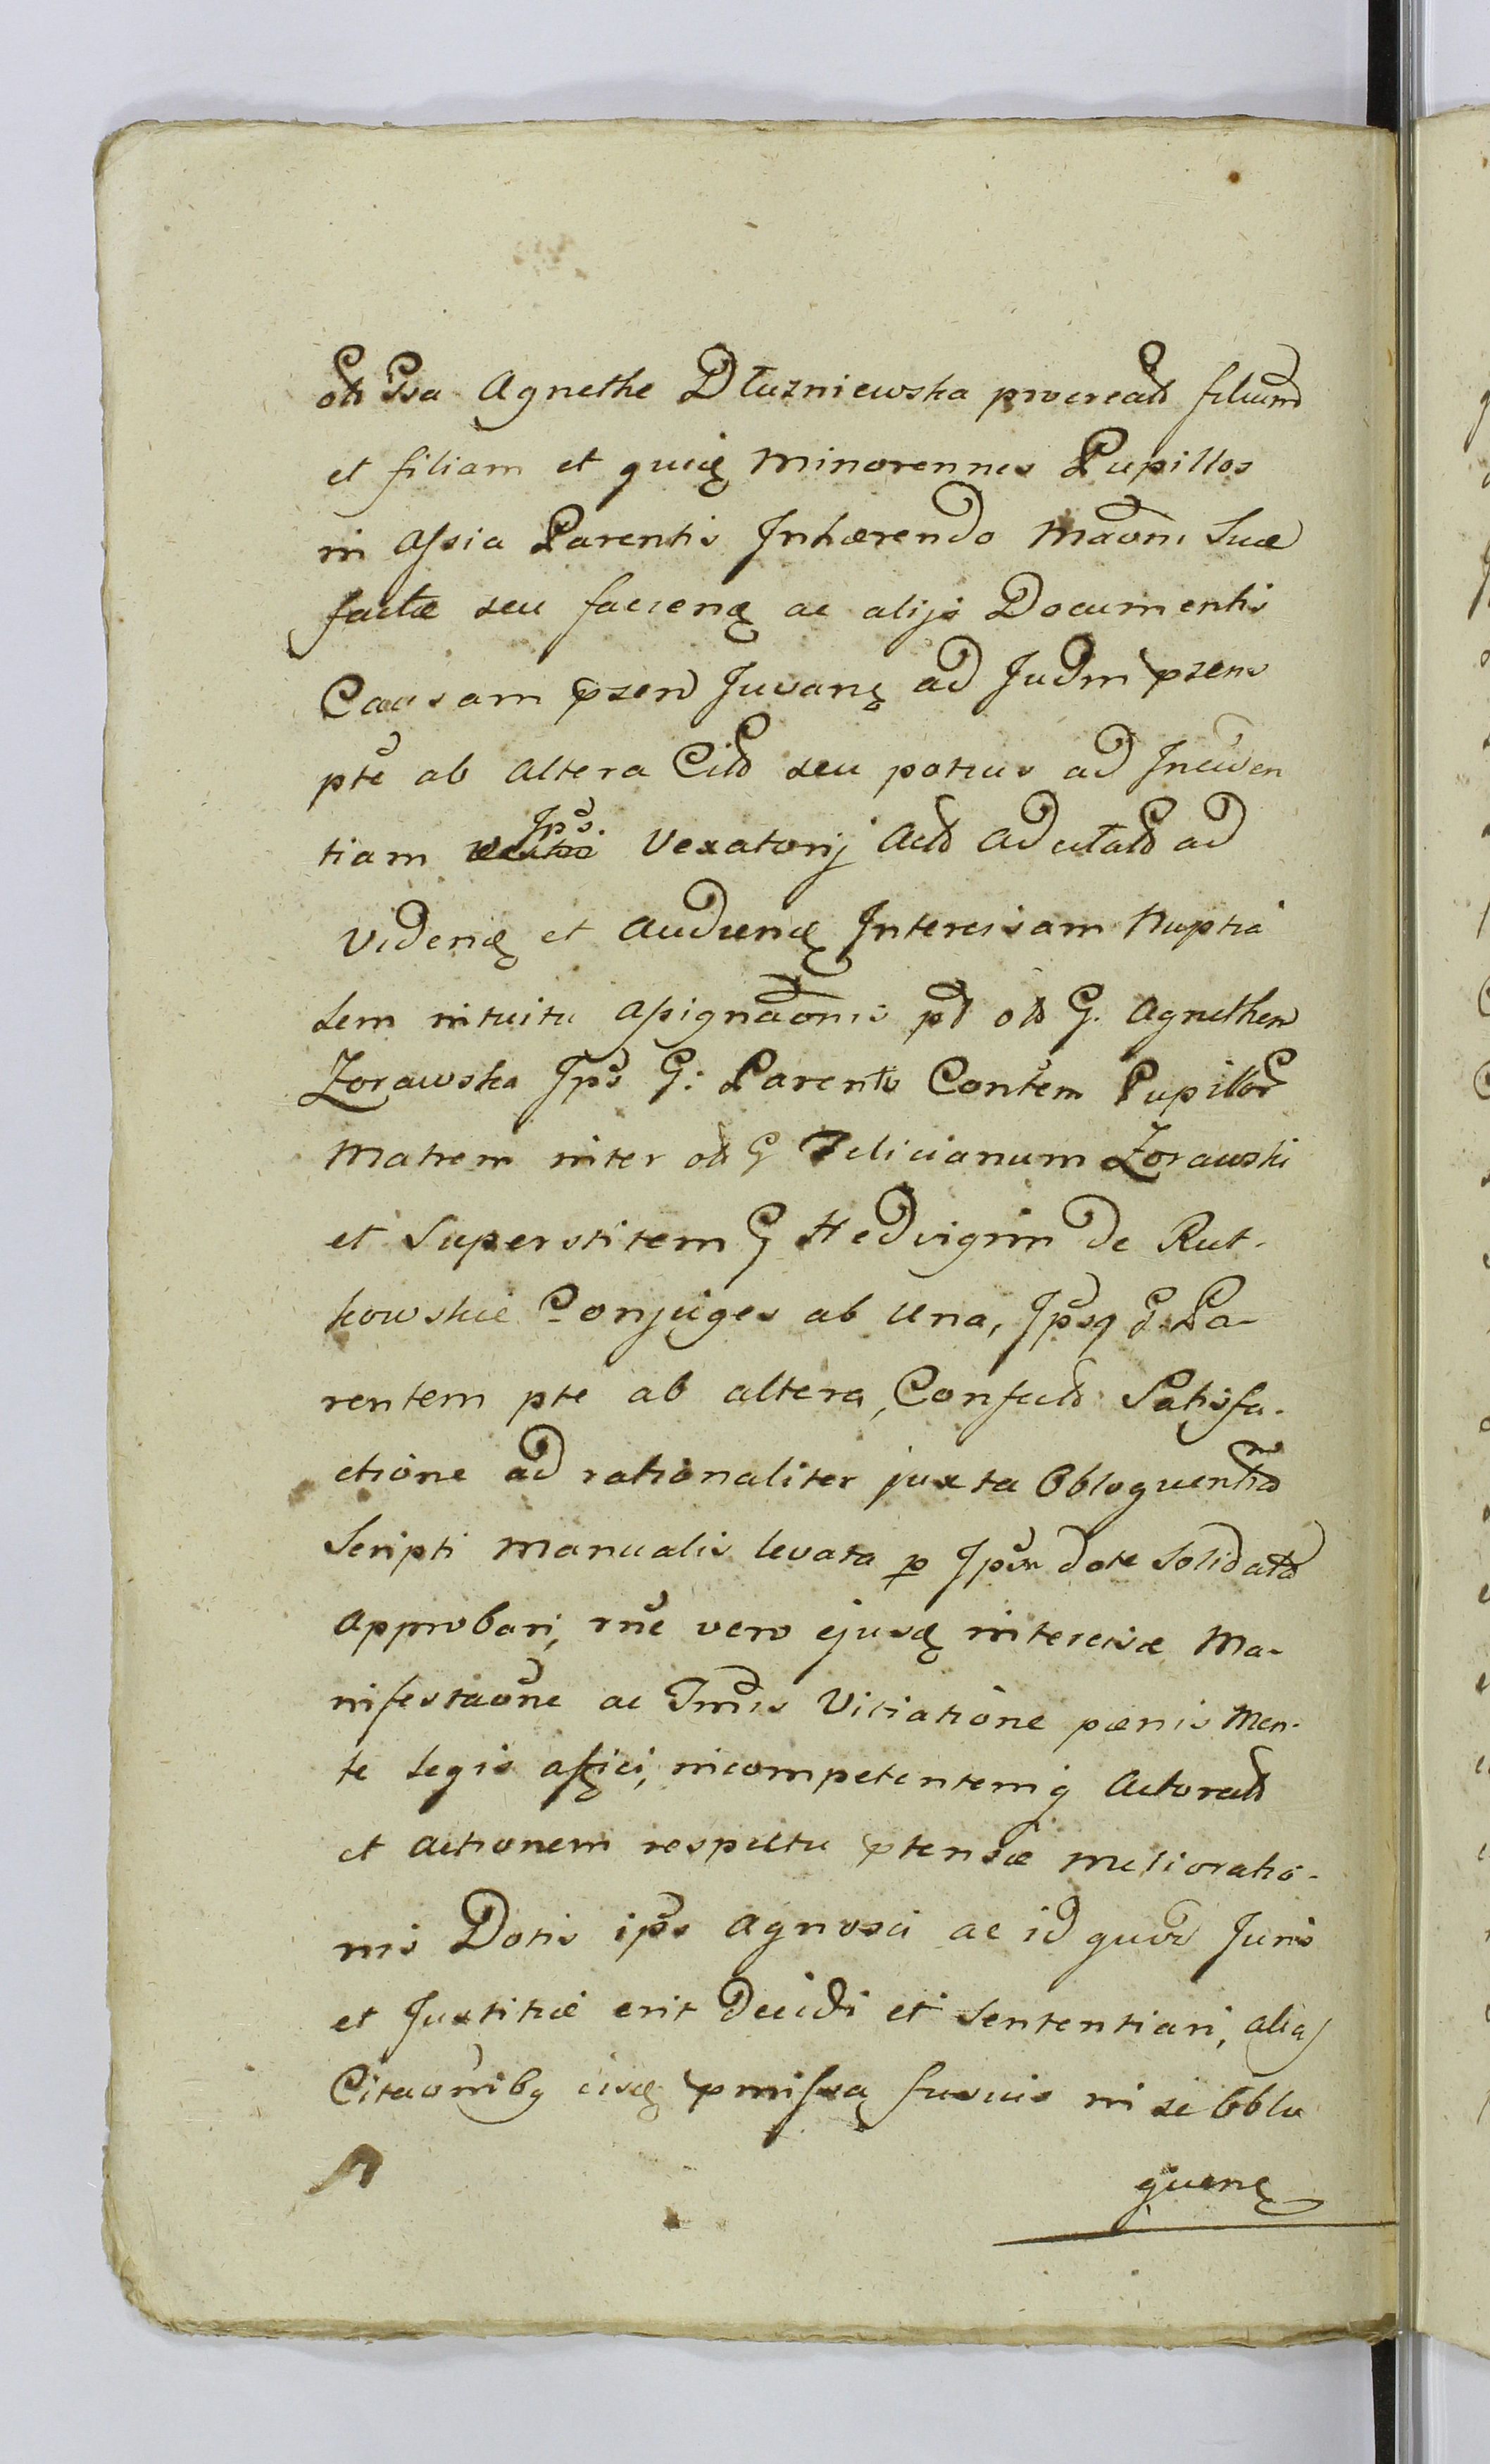 oli Gsa Agnethe Dłuzniewska procreat filium
et filiam et quidę Minorennes Pupillos
in assia Parentis Inhærendo Maõni Suæ
factæ seu faciendę ac alijs Documentis
Causam pzen Juvanę ad Judm pzens
pte ab altera Cit seu potius ad Incõven
tiam Ips. Vexatorij Act adcitat ad
videndę et audiendę Intercisam Nuptia
lem intuitu assignaõnis pd olt G. Agnethen
Zorawska Ips G: Parentis Contem Pupillor
Matrem inter olt G Felicianum Zorawski
et Superstitem G Hedvigim de Rut-
kowskie Conjuges ab una, Ipsq G. Pa-
rentem pte ab altera, Confect Satisfa-
ctione ad rationaliter juxta Obloquentia
Scripti Manualis levata p Ipsm dote Solidata
Approbari, rne vero ejusdę intercisæ Ma-
nifestaõne ac Tmis Vitiatione pænis Men-
te Legis affici, incompetentemq Actorat
et actionem respectu ptensæ melioratio-
nis Dotis ips agnosci ac id quod Juris
et Justitiæ erit Decidi et Sententiari, alias
Citaõnibq eisdę pmissa fusius in se Oblo
quenę